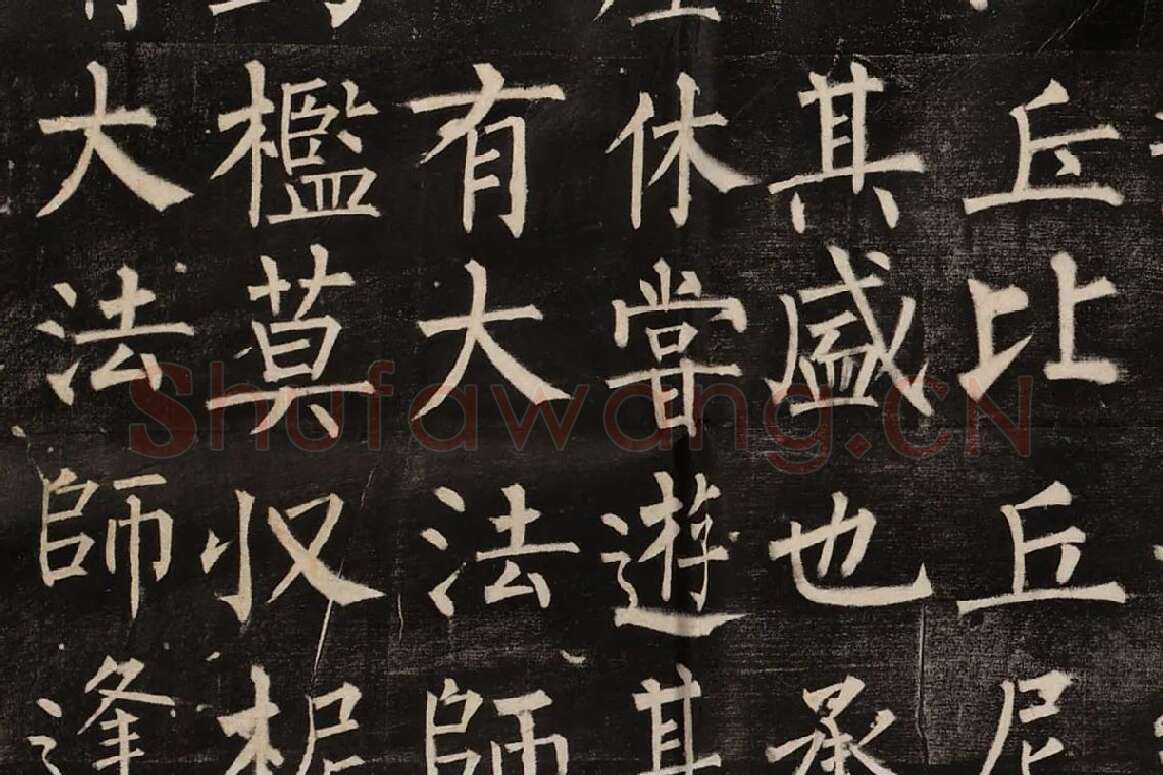 丘比丘尼
其盛也承
休嘗遊其
有大法師
檻莫収柅
大法師逢
Shufawang.CN